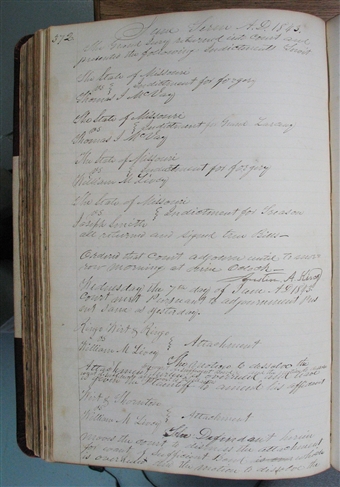 372
June Term A.D. 1843
The Grand Jury returned into Court and
presents the following Indictments towit
The State of Missouri
vs } Indictment for forgery
Thomas J McVay
The State of Missouri
vs } Indictment for Grand Larceny
Thomas J McVay
The State of Missouri
vs } Indictment for forgery
William M Livey
The State of Missouri
vs } Indictment for Treason
Joseph Smith
all returned and signed true Bills
Ordered that Court adjourn until to mor
row morning at nine Oclock
Austin A. King
Wednesday the 7th day of June A.D 1843
Court met Pursuant to adjournment Pres
ent Same as yesterday
Rings
vs } Attachment
William M Livey
The motion to dissolve the
Attachment
is given the Plaintiff to amend his affidavit
& Thornton
vs } Attachment
William M Livey
The Defendant herein
moves the court to the attachment
for want of Sufficient
is overruled and the motion to dissolve the